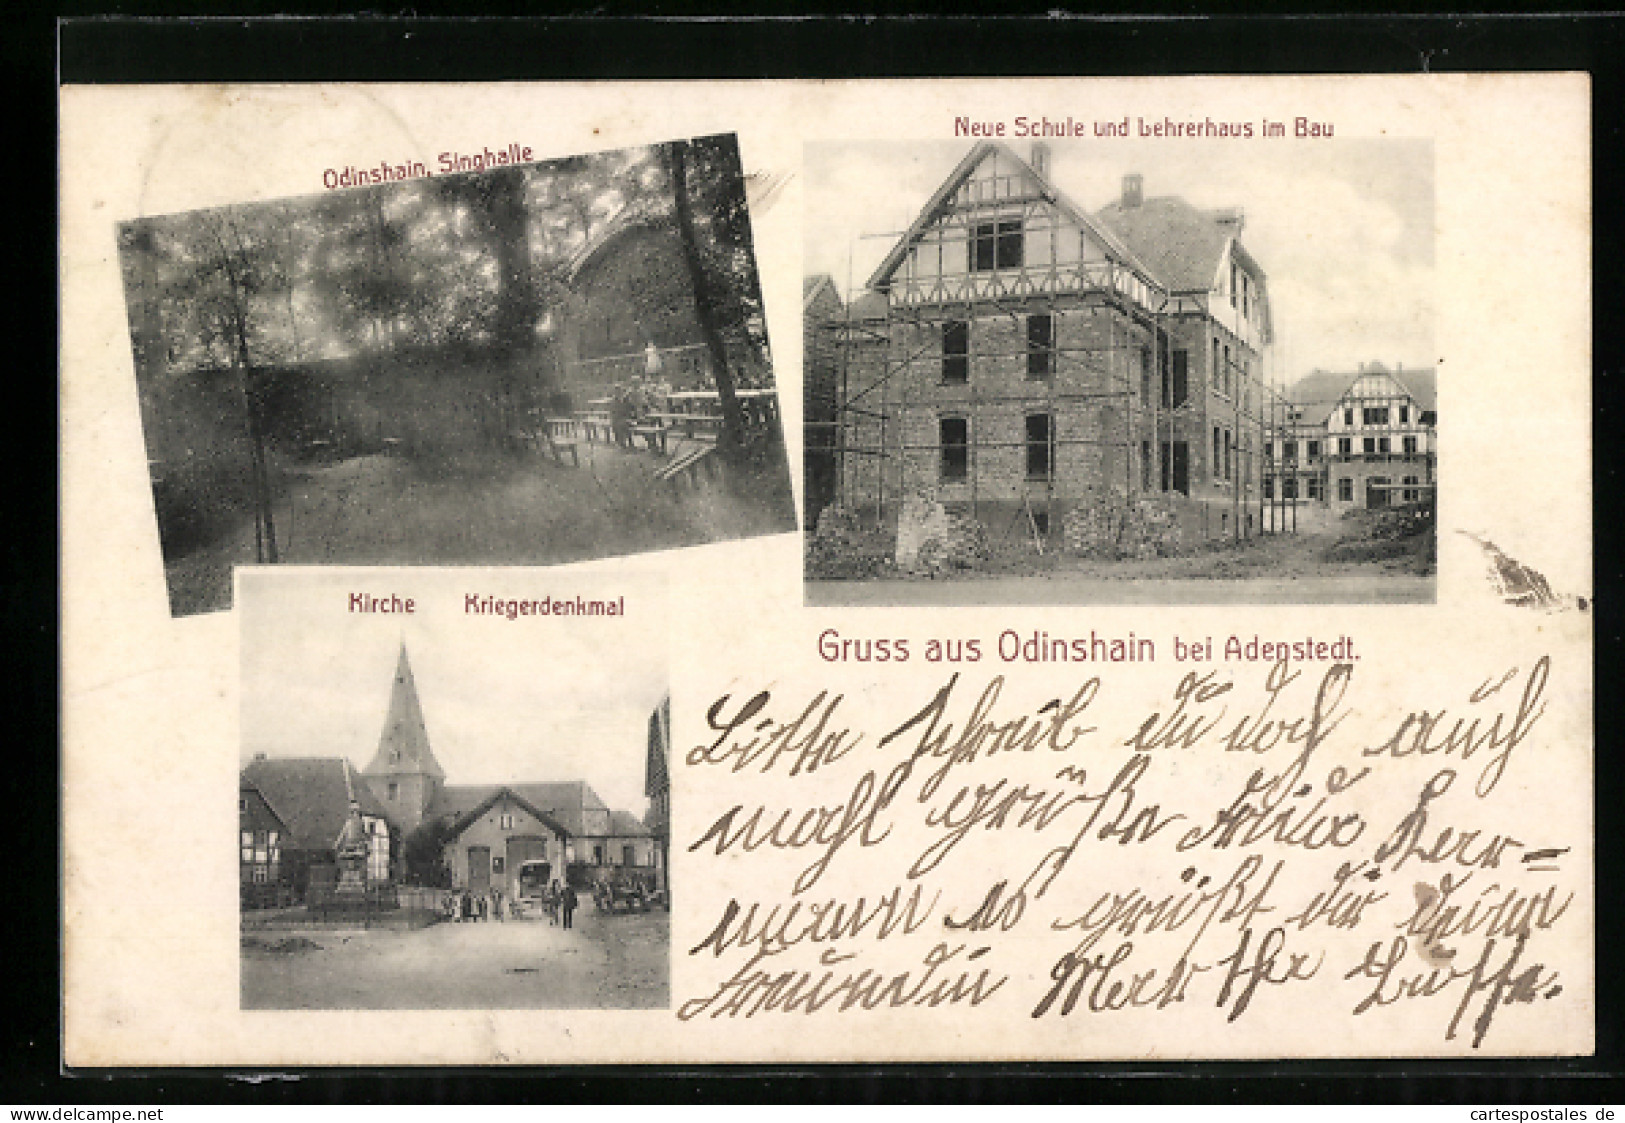 Odinshain, Singhalle
Neue Schule und Lehrerhaus im Bau
Kirche Kriegerdenkmal
Gruss aus Odinshain bei Adenstedt.
Bitte schreib du doch auch
mahl grüße Frieda Herr=
mann es grüßt dir deine
Freundin Martha
delcampe.net
cartespostales_de